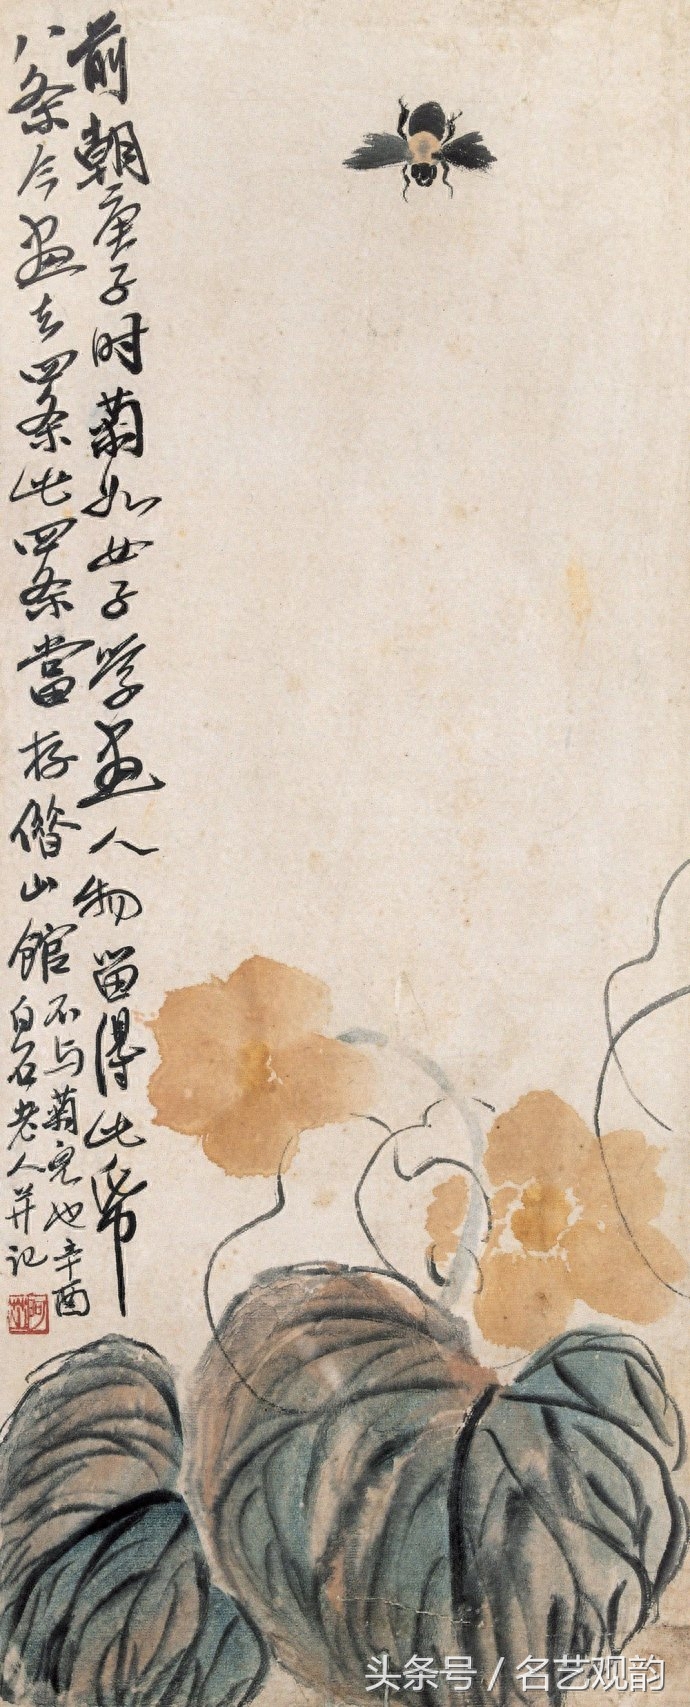 前朝庚子时菊如女子学画人物留得此纸
八条今画去四条此四条當存借山館
不与菊兒也辛酉
白石老人并记
头条号 / 名艺观韵